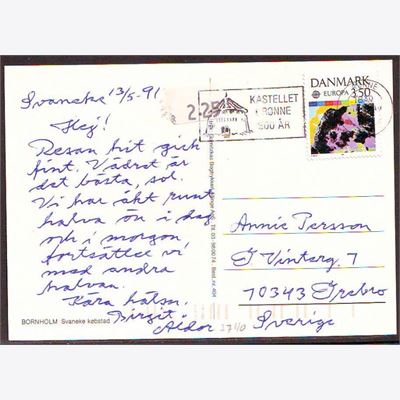 Svaneke 13/5-91
Hej!
Resan hit gick
fint. Vädret är
det bästa, sol.
Vi har åkt runt
halva ön i dag
och i morgon
fortsätter vi
med andra
halvan.
Kära hälsn.
Birgit.
Aldor
BORNHOLM Svaneke købstad
2.25
KASTELLET
RØNNE
500 ÅR
DANMARK
EUROPA 3.50
Annie Persson
G Vinterg. 7
70343 Örebro
Sverige